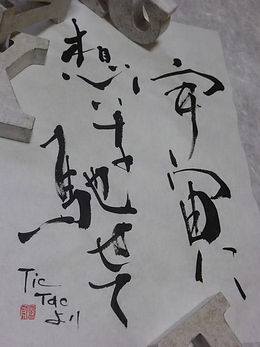 宇宙に
想いを馳せて
Tic
Tac
より